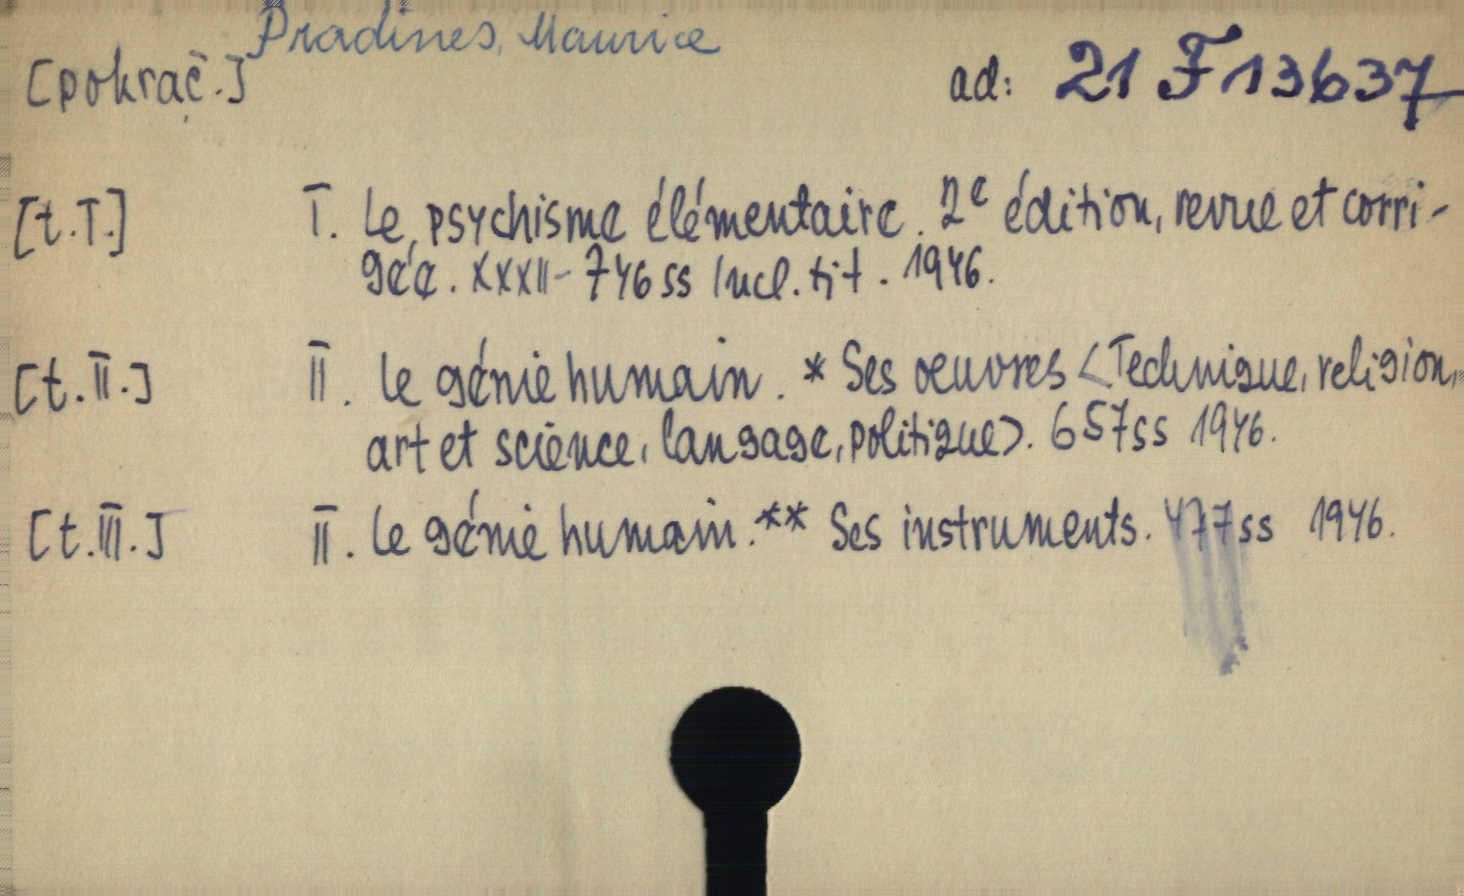 Pradines, Maurice
[pokrač.]
ad: 21 F 13637
[t.I.] I. Le psychisme élémentaire. 2e édition, revue et corri-
gée. XXXII-746 ss incl. tit. 1946.
[t.II.] II. Le génie humain. * Ses oeuvres <Technique, religion,
art et science, langage, politique>. 657 ss 1946.
[t.III.] II. Le génie humain. ** Ses instruments. 477 ss 1946.